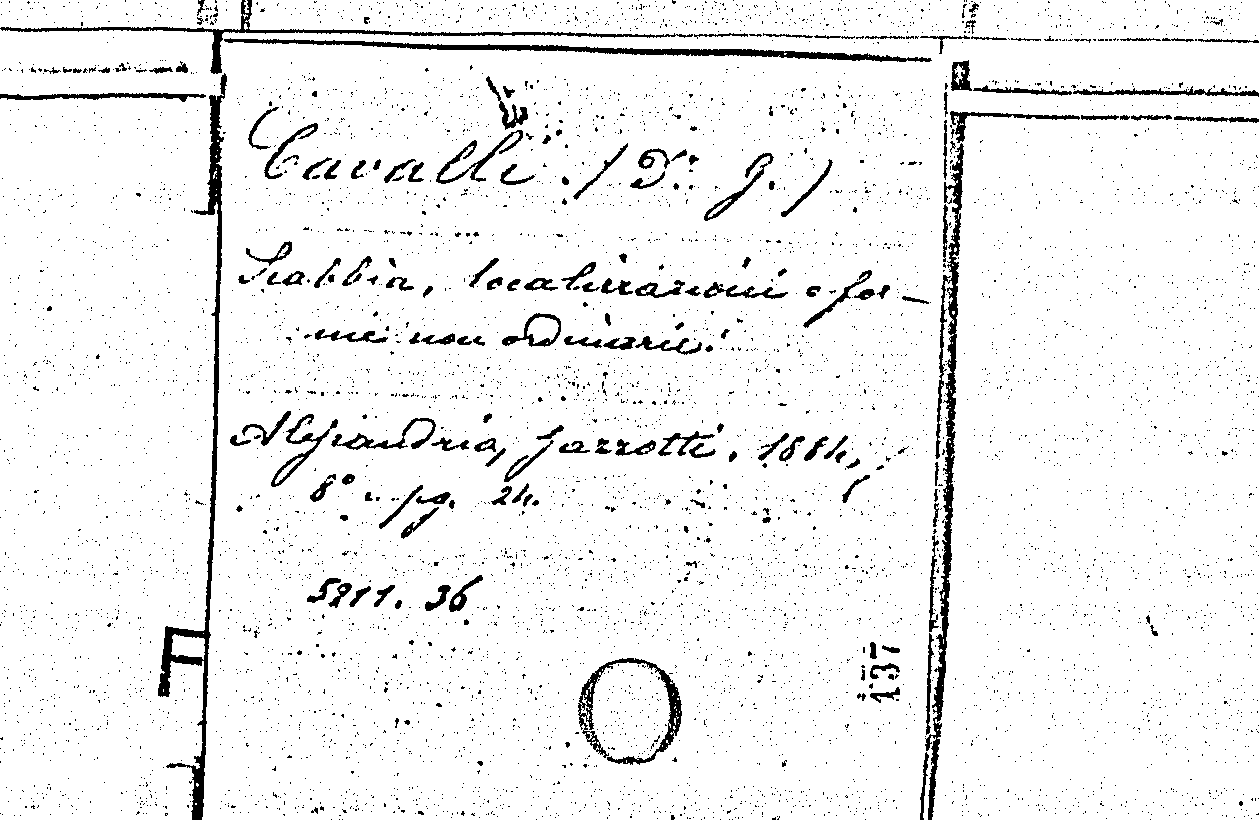 Cavalli. (Dr. G.)
Scabbia, localizzazioni e for-
me non ordinarie.
Alessandria, Jazzotti. 1884,
8° pg. 24.
5211. 36
137